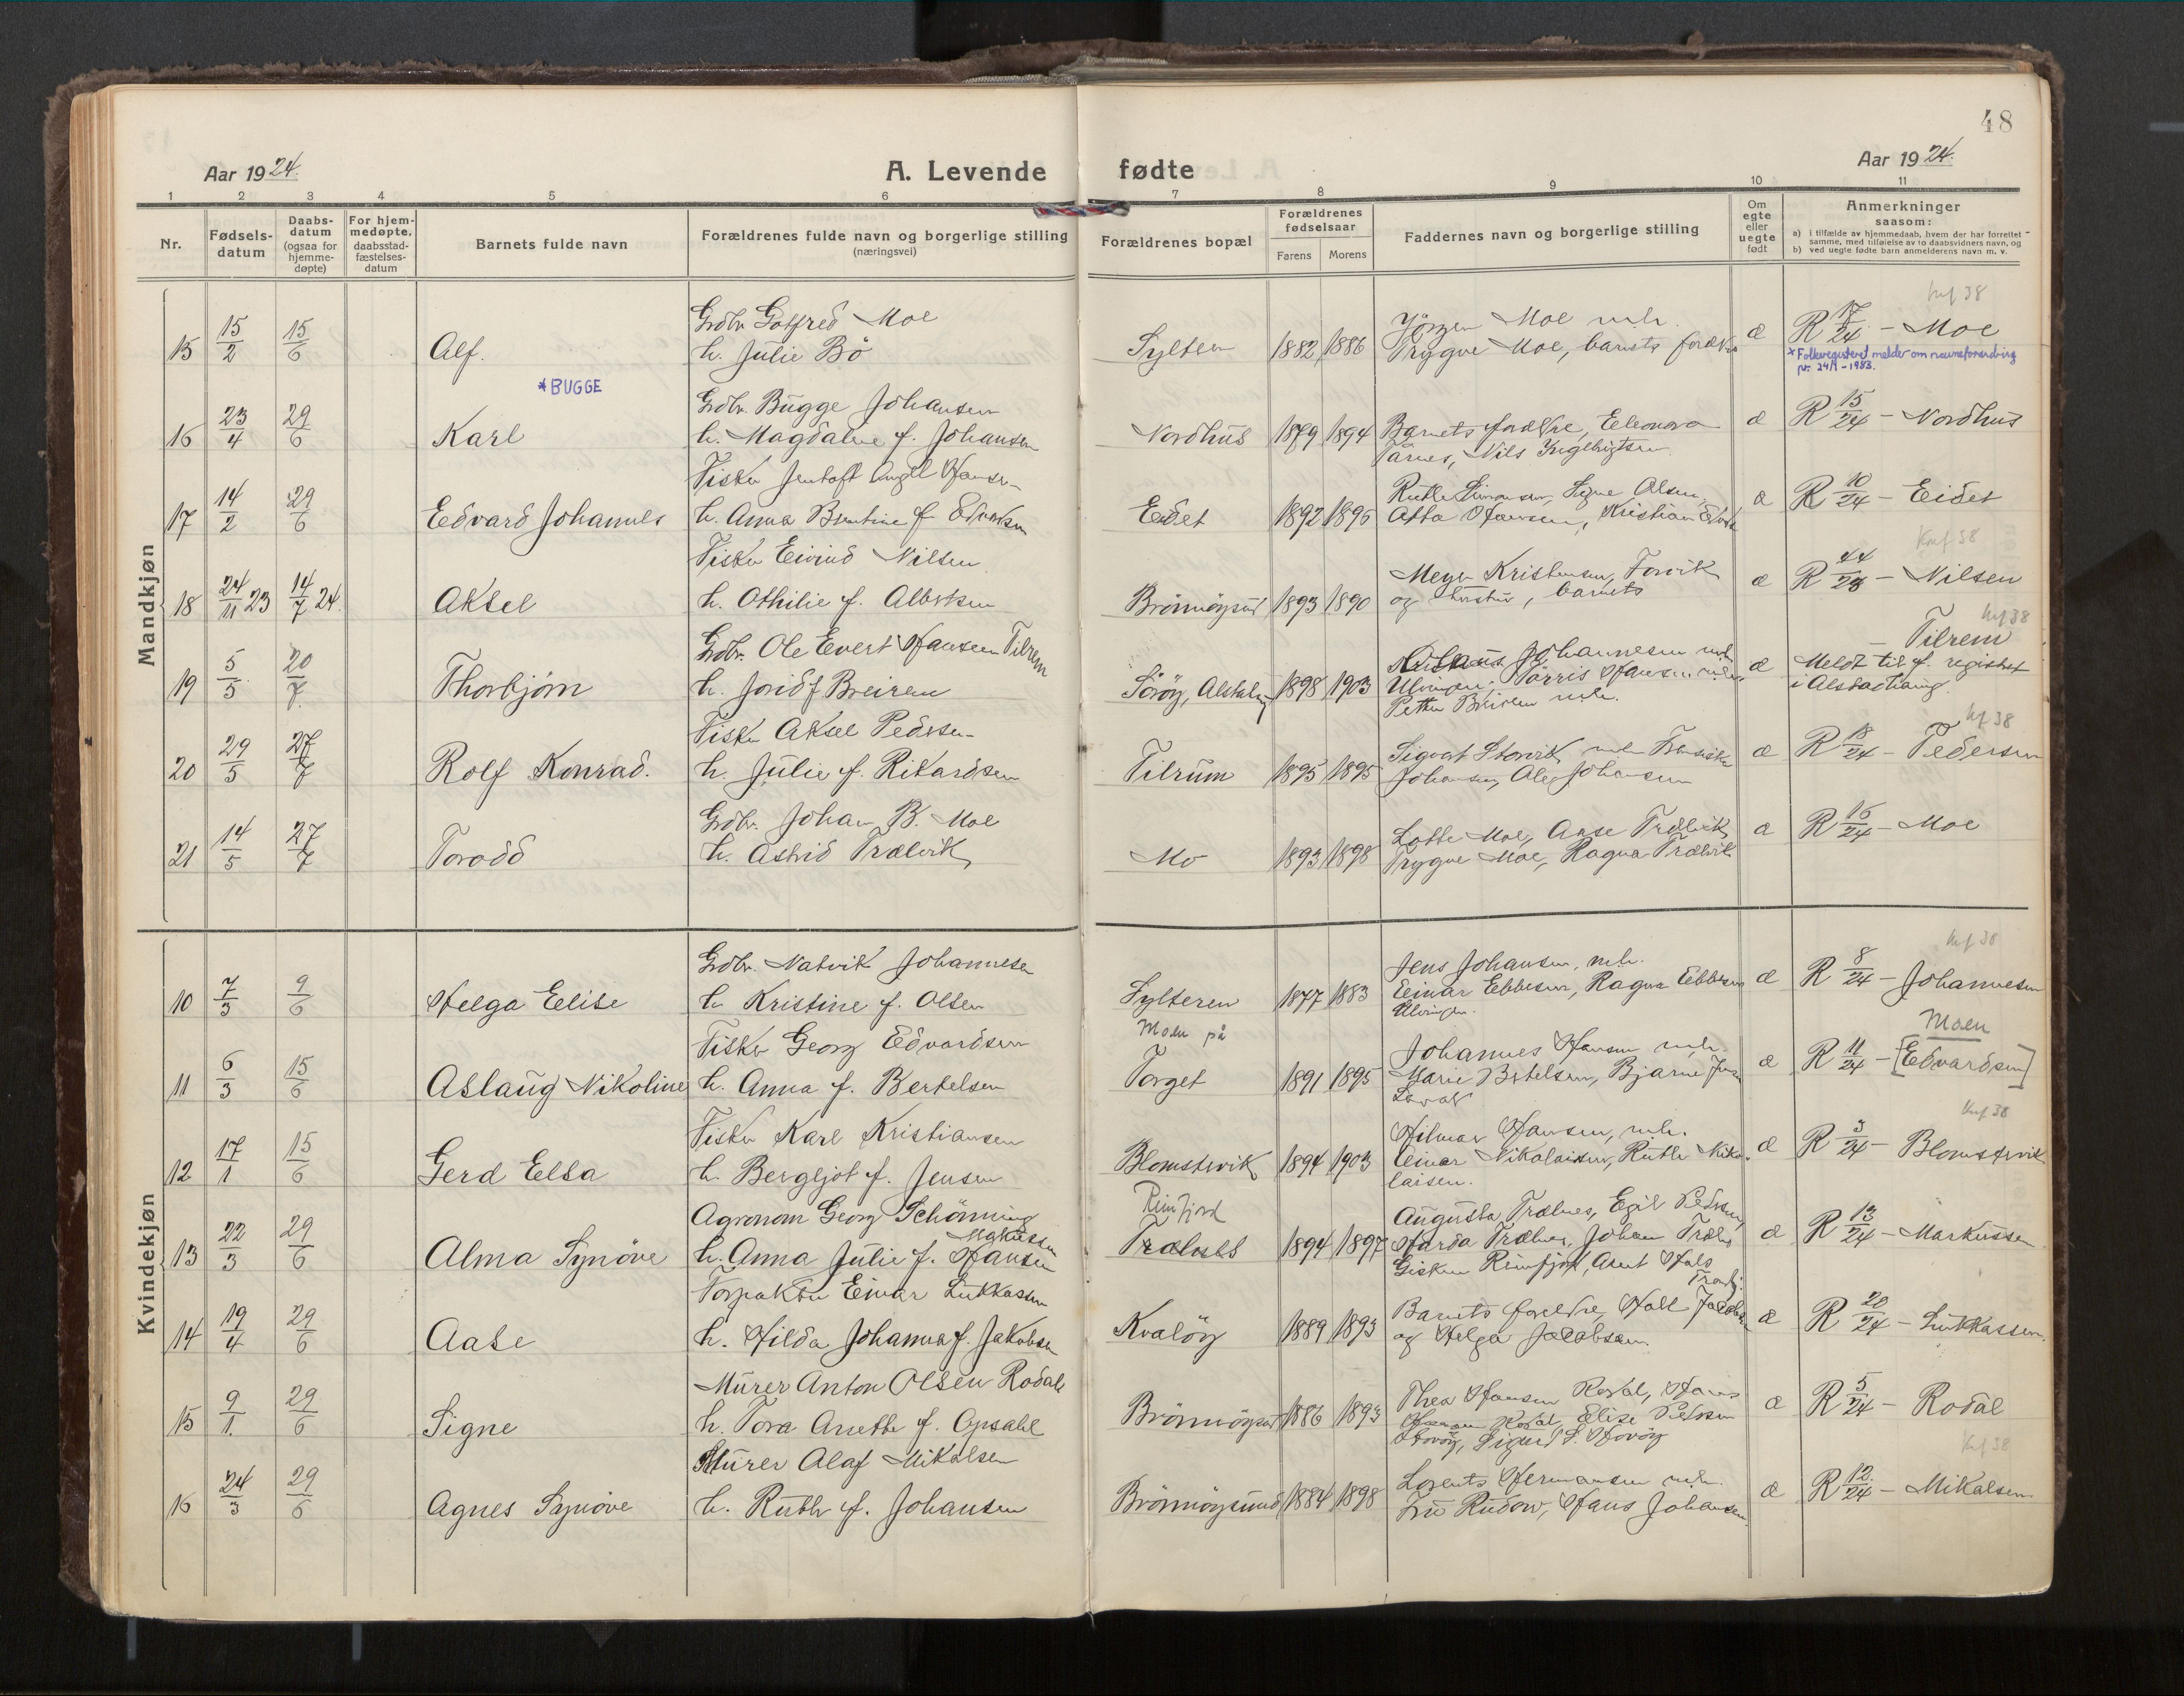 48
Aar 1924.
A. Levende fødte
Aar 1924.
1 2 3 4 5 6 7 8 9 10 11
Nr.
Fødsels-
datum
Daabs-
datum
(ogsaa for
hjemme-
døpte)
For hjem-
medøpte.
daabsstad-
fæstelses-
datum
Barnets fulde navn
Forældrenes fulde navn og borgerlige stilling
(næringsvei)
Forældrenes bopæl
Forældrenes
fødselsaar
Farens Morens
Faddernes navn og borgerlige stilling
Om
egte
eller
uegte
født
Anmerkninger
saasom:
a) i tilfælde av hjemmedaab, hvem der har forrettet
samme, med tilføielse av to daabsvidners navn, og
b) ved uegte fødte barn anmelderens navn m. v.
Mandkjøn
15 15/2 15/6 Alf.
Grdbr. Gotfred Moe
h. Julie Bö
1882 1886
Jörgen Moe m.h.
Trygve Moe, barnets
æ R 17/24 - Moe
* Folkeregisteret melder om navneforandring
pr. 24/1 - 1983.
* BUGGE
16 23/4 29/6 Karl
Grdbr. Bugge Johansen
h. Magdalene f. Johansen
Nordhus 1879 1894
Barnets forældre, Eleonora
Tårnes, Nils Ingebrigtsen
æ R 15/24 - Nordhus
17 14/2 29/6 Edvard Johannes
Fisker Jentoft Angel Hansen
h. Anna Bentine f. Edvardsen
Eidet 1892 1895
Ruth Simonsen, Signe Olsen,
Hansen, Kristian
æ R 10/24 - Eidet
Konf 38
18 24/11 23 14/7 24. Aksel
Fisker Eivind Nilsen
h. Othilie f. Albertsen
Brönnöysund 1893 1890
Meyer Kristensen, Forvik
og hustru, barnets
æ R 44/23 - Nilsen
19 5/5 20/7 Thorbjörn
Grdbr. Ole Evert Hansen Tilrem
h. Jorid f. Breirem
Söröy, Alstahaug 1898 1903
Johannesen m.h.
Ulvingen, Hansen m.h.
Petter m.h.
æ - Tilrem
Meldt til f. registret
i Alstadhaug.
20 29/5 27/7 Rolf Konrad.
Fisker Aksel Pedersen
h. Julie f. Rikardsen
Tilrum 1895 1895
Sigvat Storvik m.h.
Johansen, Johansen
æ R 18/24 - Pedersen
21 14/5 27/7 Torodd
Grdbr. Johan B. Moe
h. Astrid Trælvik
Mo 1893 1898
Lotte Moe, Aase Trælvik
Trygve Moe, Ragna Trælvik
æ R 16/24 - Moe
Kvindekjøn
10 7/3 9/6 Helga Elise
Grdbr. Natvik Johannesen
h. Kristine f. Olsen
Sylteren 1877 1883
Jens Johansen, m.h.
Einar Ebbesen, Ragna Ebbesen
Ulvingen.
æ R 8/24 - Johannesen
11 6/3 15/6 Aslaug Nikoline
Fisker Georg Edvardsen
h. Anna f. Bertelsen
Moen på
Torget 1891 1895
Johannes Hansen m.h.
Marie Bertelsen, Bjarne
æ R 11/24 - [Edvardsen]
Moen
12 17/1 15/6 Gerd Elsa
Fisker Karl Kristiansen
h. Bergljot f. Jensen
Blomstervik 1894 1903
Hilmar Hansen, m.h.
Einar Nikolaisen, Ruth Niko-
laisen.
æ R 3/24 - Blomstervik
13 22/3 29/6 Alma Synöve
Agronom Georg Schönning
Markussen
h. Anna Julie f. Hansen
Reinfjord
Trælnes 1894 1897
Augusta Trælnes, Egil Pedersen,
Harda Trælnes, Johan Trælnes
Gisken Reinfjord,
æ R 13/24 - Markussen
14 19/4 29/6 Aase
Einar Lukkassen
h. Hilda Johanna f. Jakobsen
Kvalöy 1889 1893
Barnets forældre, Jacobsen
og Helga Jacobsen.
æ R 20/24 - Lukkassen.
15 9/1 29/6 Signe
Murer Anton Olsen Rodal
h. Tora Anette f. Opsahl
Brönnöysund 1886 1893
Thea Hansen Rodal, Hans
Rodal, Elise Pedersen
Sigurd S.
æ R 5/24 - Rodal
16 24/3 29/6 Agnes Synöve
Murer Olaf Mikalsen
h. Ruth f. Johansen
Brönnöysund 1884 1898
Lorents Hermansen m.h.
Fru Rudow, Hans Johansen.
æ R 12/24 - Mikalsen